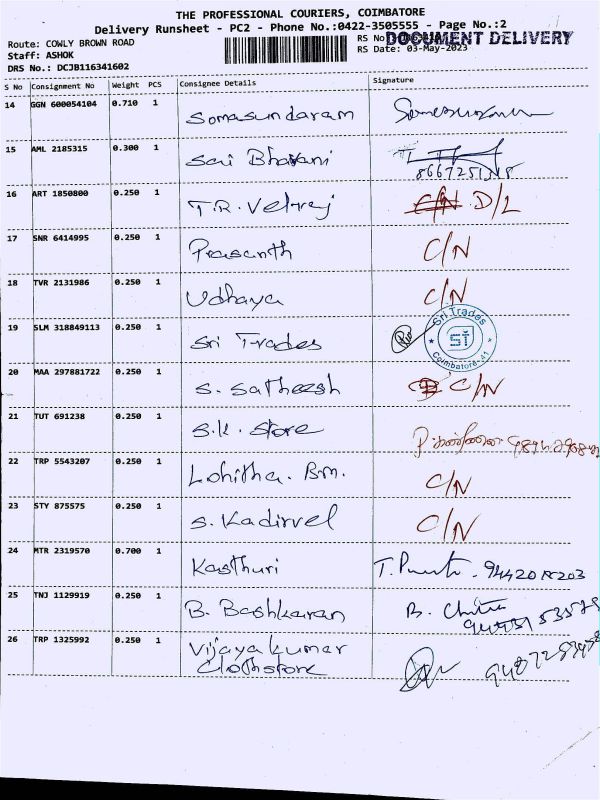 THE PROFESSIONAL COURIERS, COIMBATORE
Delivery Runsheet - PC2 - Phone No.:0422-3505555 - Page No.:2
Route: COWLY BROWN ROAD
RS No
DOCUMENT DELIVERY
Staff: ASHOK
RS Date: 03-May-2023
DRS No.: DCJB116341602
S No Consignment No Weight PCS Consignee Details Signature
14 GGN 600054104 0.710 1 Somasundaram
15 AML 2185315 0.300 1 Sai Bhavani
16 ART 1850800 0.250 1 T.R. Velraj C/N D/L
17 SNR 6414995 0.250 1 Prasanth C/N
18 TVR 2131986 0.250 1 Udhaya C/N
19 SLM 318849113 0.250 1 Sri Trades
Sri Trades
Coimbatore-41
20 MAA 297881722 0.250 1 S. Satheesh C/N
21 TUT 691238 0.250 1 S.K. Store
22 TRP 5543207 0.250 1 Lohitha. Bm. C/N
23 STY 875575 0.250 1 S. Kadirvel C/N
24 MTR 2319570 0.700 1 Kasthuri
25 TNJ 1129919 0.250 1 B. Bashkaran
26 TRP 1325992 0.250 1 Vijaya kumar
Clothstore